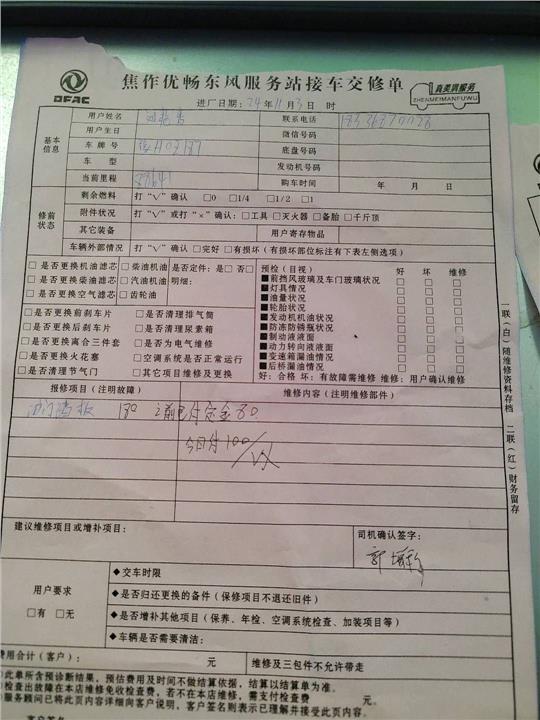 DFAC
焦作优畅东风服务站接车交修单
真美满服务
ZHENMEIMANFUWU
进厂日期：24年11月3日 时
基本信息
用户姓名
联系电话
用户生日
微信号码
车牌号
底盘号码
车型
发动机号码
当前里程
购车时间 年 月 日
修前状态
剩余燃料 打“√”确认 □0 □1/4 □1/2 □1
附件状况 打“√”或打“×”确认：□工具 □灭火器 □备胎 □千斤顶
其它装备
用户寄存物品
车辆外部情况 打“√”确认 □完好 □有损坏（有损坏部位标注有下表左侧选项）
□是否更换机油滤芯 □柴油机油 是否定件：是□否□
□是否更换柴油滤芯 □汽油机油 明细：
□是否更换空气滤芯 □齿轮油
□是否更换前刹车片 □是否清理排气筒
□是否更换后刹车片 □是否清理尿素箱
□是否更换离合三件套 □是否为电气维修
□是否更换火花塞 □空调系统是否正常运行
□是否清理节气门 □其它项目维修及更换
预检（目视） 好 坏 维修
■前挡风玻璃及车门玻璃状况 □ □ □
■灯具情况 □ □ □
■油量状况 □ □ □
■轮胎状况 □ □ □
■发动机机油状况 □ □ □
■防冻防锈瓶状况 □ □ □
■制动液液面 □ □ □
■动力转向液液面 □ □ □
■变速箱漏油情况 □ □ □
■后桥漏油情况 □ □ □
好：合格 坏：有故障需维修 维修：用户确认维修
报修项目（注明故障）
维修内容（注明维修部件）
油门踏板 180 之前已付定金80
今日付100
建议维修项目或增补项目：
司机确认签字：
用户要求
□有 □无
◆交车时限
◆是否归还更换的备件（保修项目不退还旧件）
◆是否增补其他项目（保养、年检、空调系统检查、加装项目等）
◆车辆是否需要清洁：
费用合计（客户）： 元
维修及三包件不允许带走
①此单所含预诊断结果，预估费用及时间不做结算依据，结算以结算单为准。
②检查出故障在本店维修免收检查费，若不在本店维修，需支付检查费 元
③服务顾问已将此页内容详细向客户说明，客户签名则表示已理解并接受此页内容。
客户签名
一联（白）随维修资料存档 二联（红）财务留存